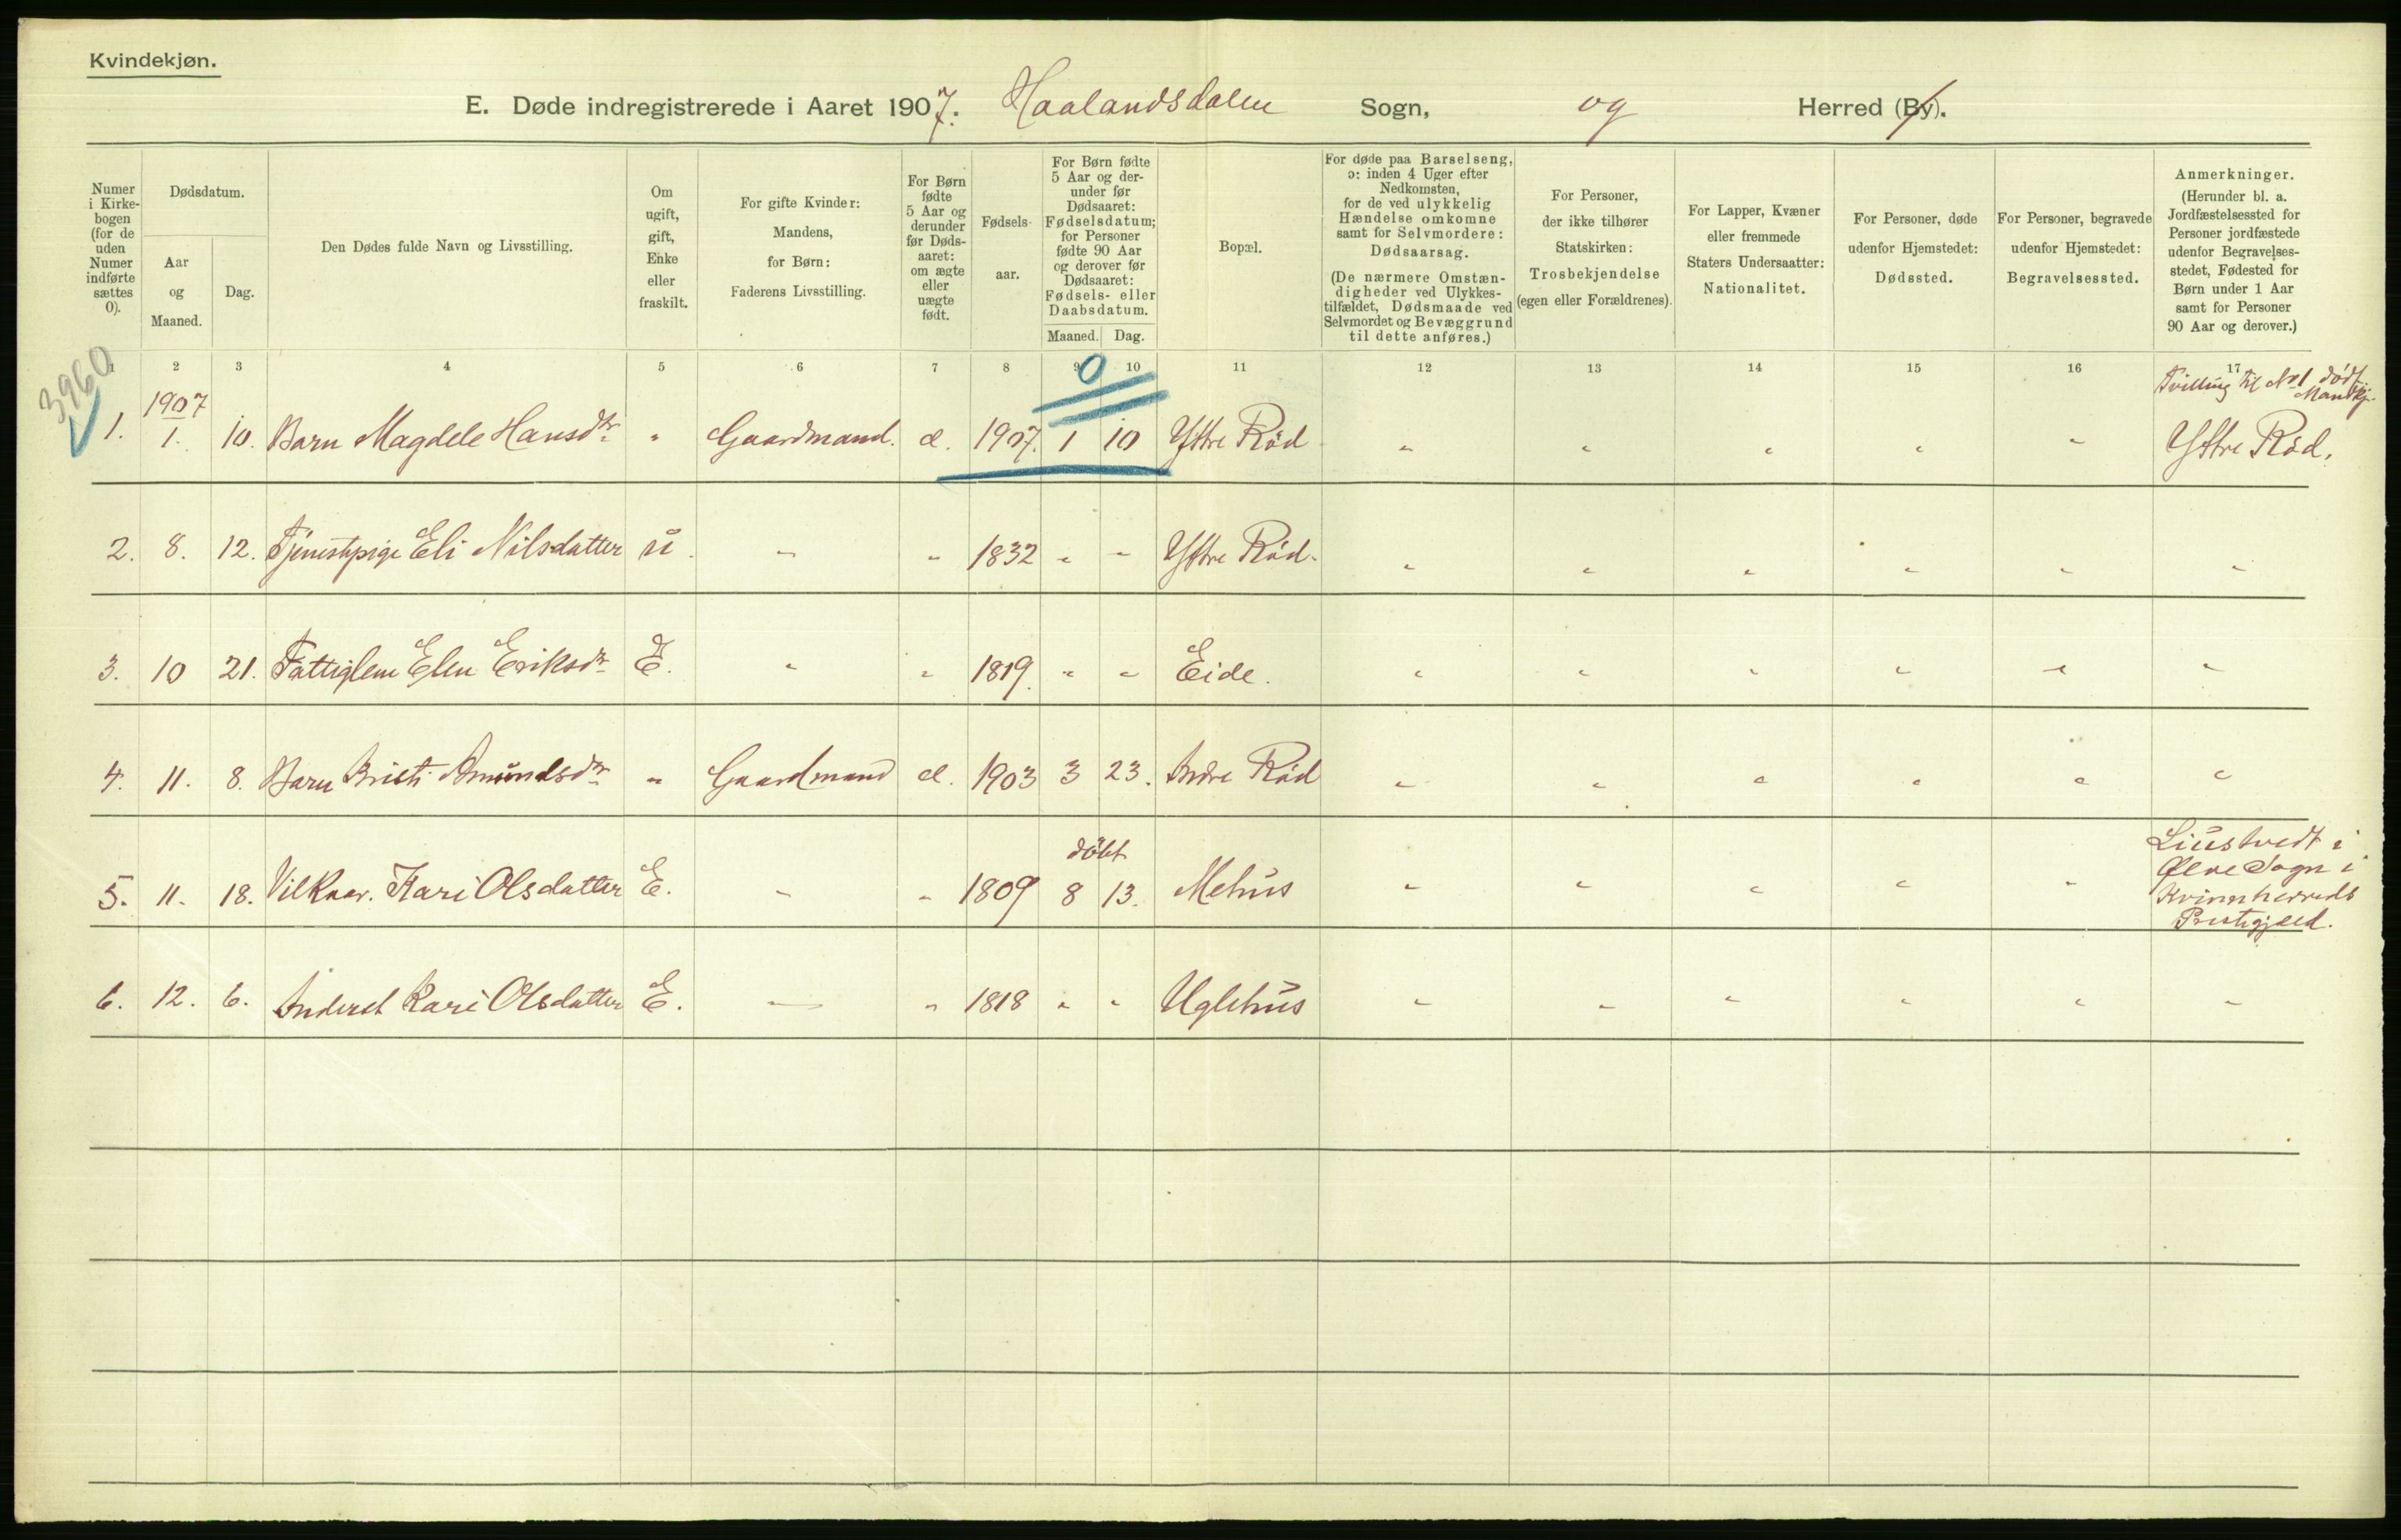 Kvindekjøn.
E. Døde indregistrerede i Aaret 1907. Haalandsdalen Sogn, og Herred (By).
Numer i Kirkebogen (for de uden Numer indførte sættes 0).
Dødsdatum.
Aar og Maaned.
Dag.
Den Dødes fulde Navn og Livsstilling.
Om ugift, gift, Enke eller fraskilt.
For gifte Kvinder: Mandens, for Børn: Faderens Livsstilling.
For Børn fødte 5 Aar og derunder før Dødsaaret: om ægte eller uægte født.
Fødselsaar.
For Børn fødte 5 Aar og derunder før Dødsaaret: Fødselsdatum; for Personer fødte 90 Aar og derover før Dødsaaret: Fødsels- eller Daabsdatum.
Maaned. Dag.
Bopæl.
For døde paa Barselseng, ɔ: inden 4 Uger efter Nedkomsten, for de ved ulykkelig Hændelse omkomne samt for Selvmordere: Dødsaarsag. (De nærmere Omstændigheder ved Ulykkestilfældet, Dødsmaade ved Selvmordet og Bevæggrund til dette anføres.)
For Personer, der ikke tilhører Statskirken: Trosbekjendelse (egen eller Forældrenes).
For Lapper, Kvæner eller fremmede Staters Undersaatter: Nationalitet.
For Personer, døde udenfor Hjemstedet: Dødssted.
For Personer, begravede udenfor Hjemstedet: Begravelsessted.
Anmerkninger. (Herunder bl. a. Jordfæstelsessted for Personer jordfæstede udenfor Begravelsesstedet, Fødested for Børn under 1 Aar samt for Personer 90 Aar og derover.)
1 2 3 4 5 6 7 8 9 10 11 12 13 14 15 16 17
3960
0
1907
Tvilling til No 1 død Mandkj.
1. 1. 10. Barn Magdele Hansdtr. " Gaardmand. æ. 1907. 1 10 Yttre Rød " " " " " Yttre Rød.
2. 8. 12. Tjenestepige Eli Nilsdatter u. " " 1832 " " Yttre Rød. " " " " " "
3. 10 21. Fattiglem Elen Eriksdtr. E. " " 1819. " " Eide. " " " " " "
4. 11. 8. Barn Kristi Amundsdtr. " Gaardmand æ. 1903 3 23. Indre Rød " " " " " "
døbt
5. 11. 18. Vilkaar. Kari Olsdatter E. " " 1809 8 13. Mehus " " " " " Liustvedt i
Ølve Sogn i
Kvinnherreds
Prestigjæld.
6. 12. 6. Inderst Kari Olsdatter E. " " 1818 " " Uglehus " " " " " "